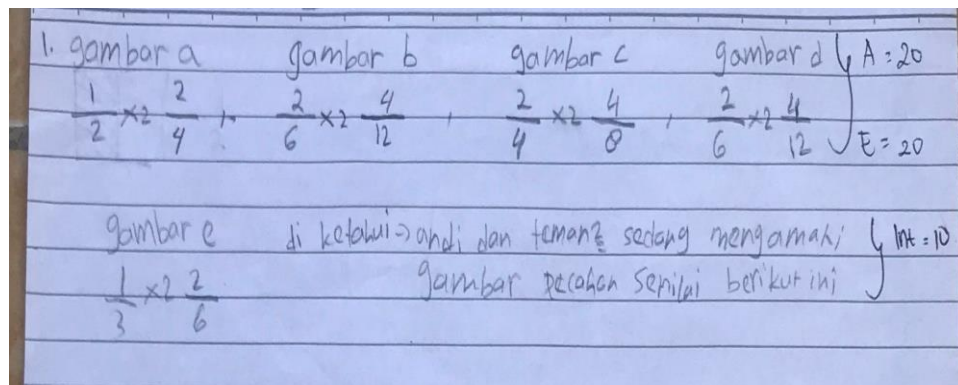 1. gambar a gambar b gambar c gambar d } A = 20
1/2 ×2 2/4 , 2/6 ×2 4/12 , 2/4 ×2 4/8 , 2/6 ×2 4/12 } E = 20
gambar e di ketahui => andi dan teman2 sedang mengamati } Int = 10
1/3 ×2 2/6 gambar pecahan senilai berikut ini